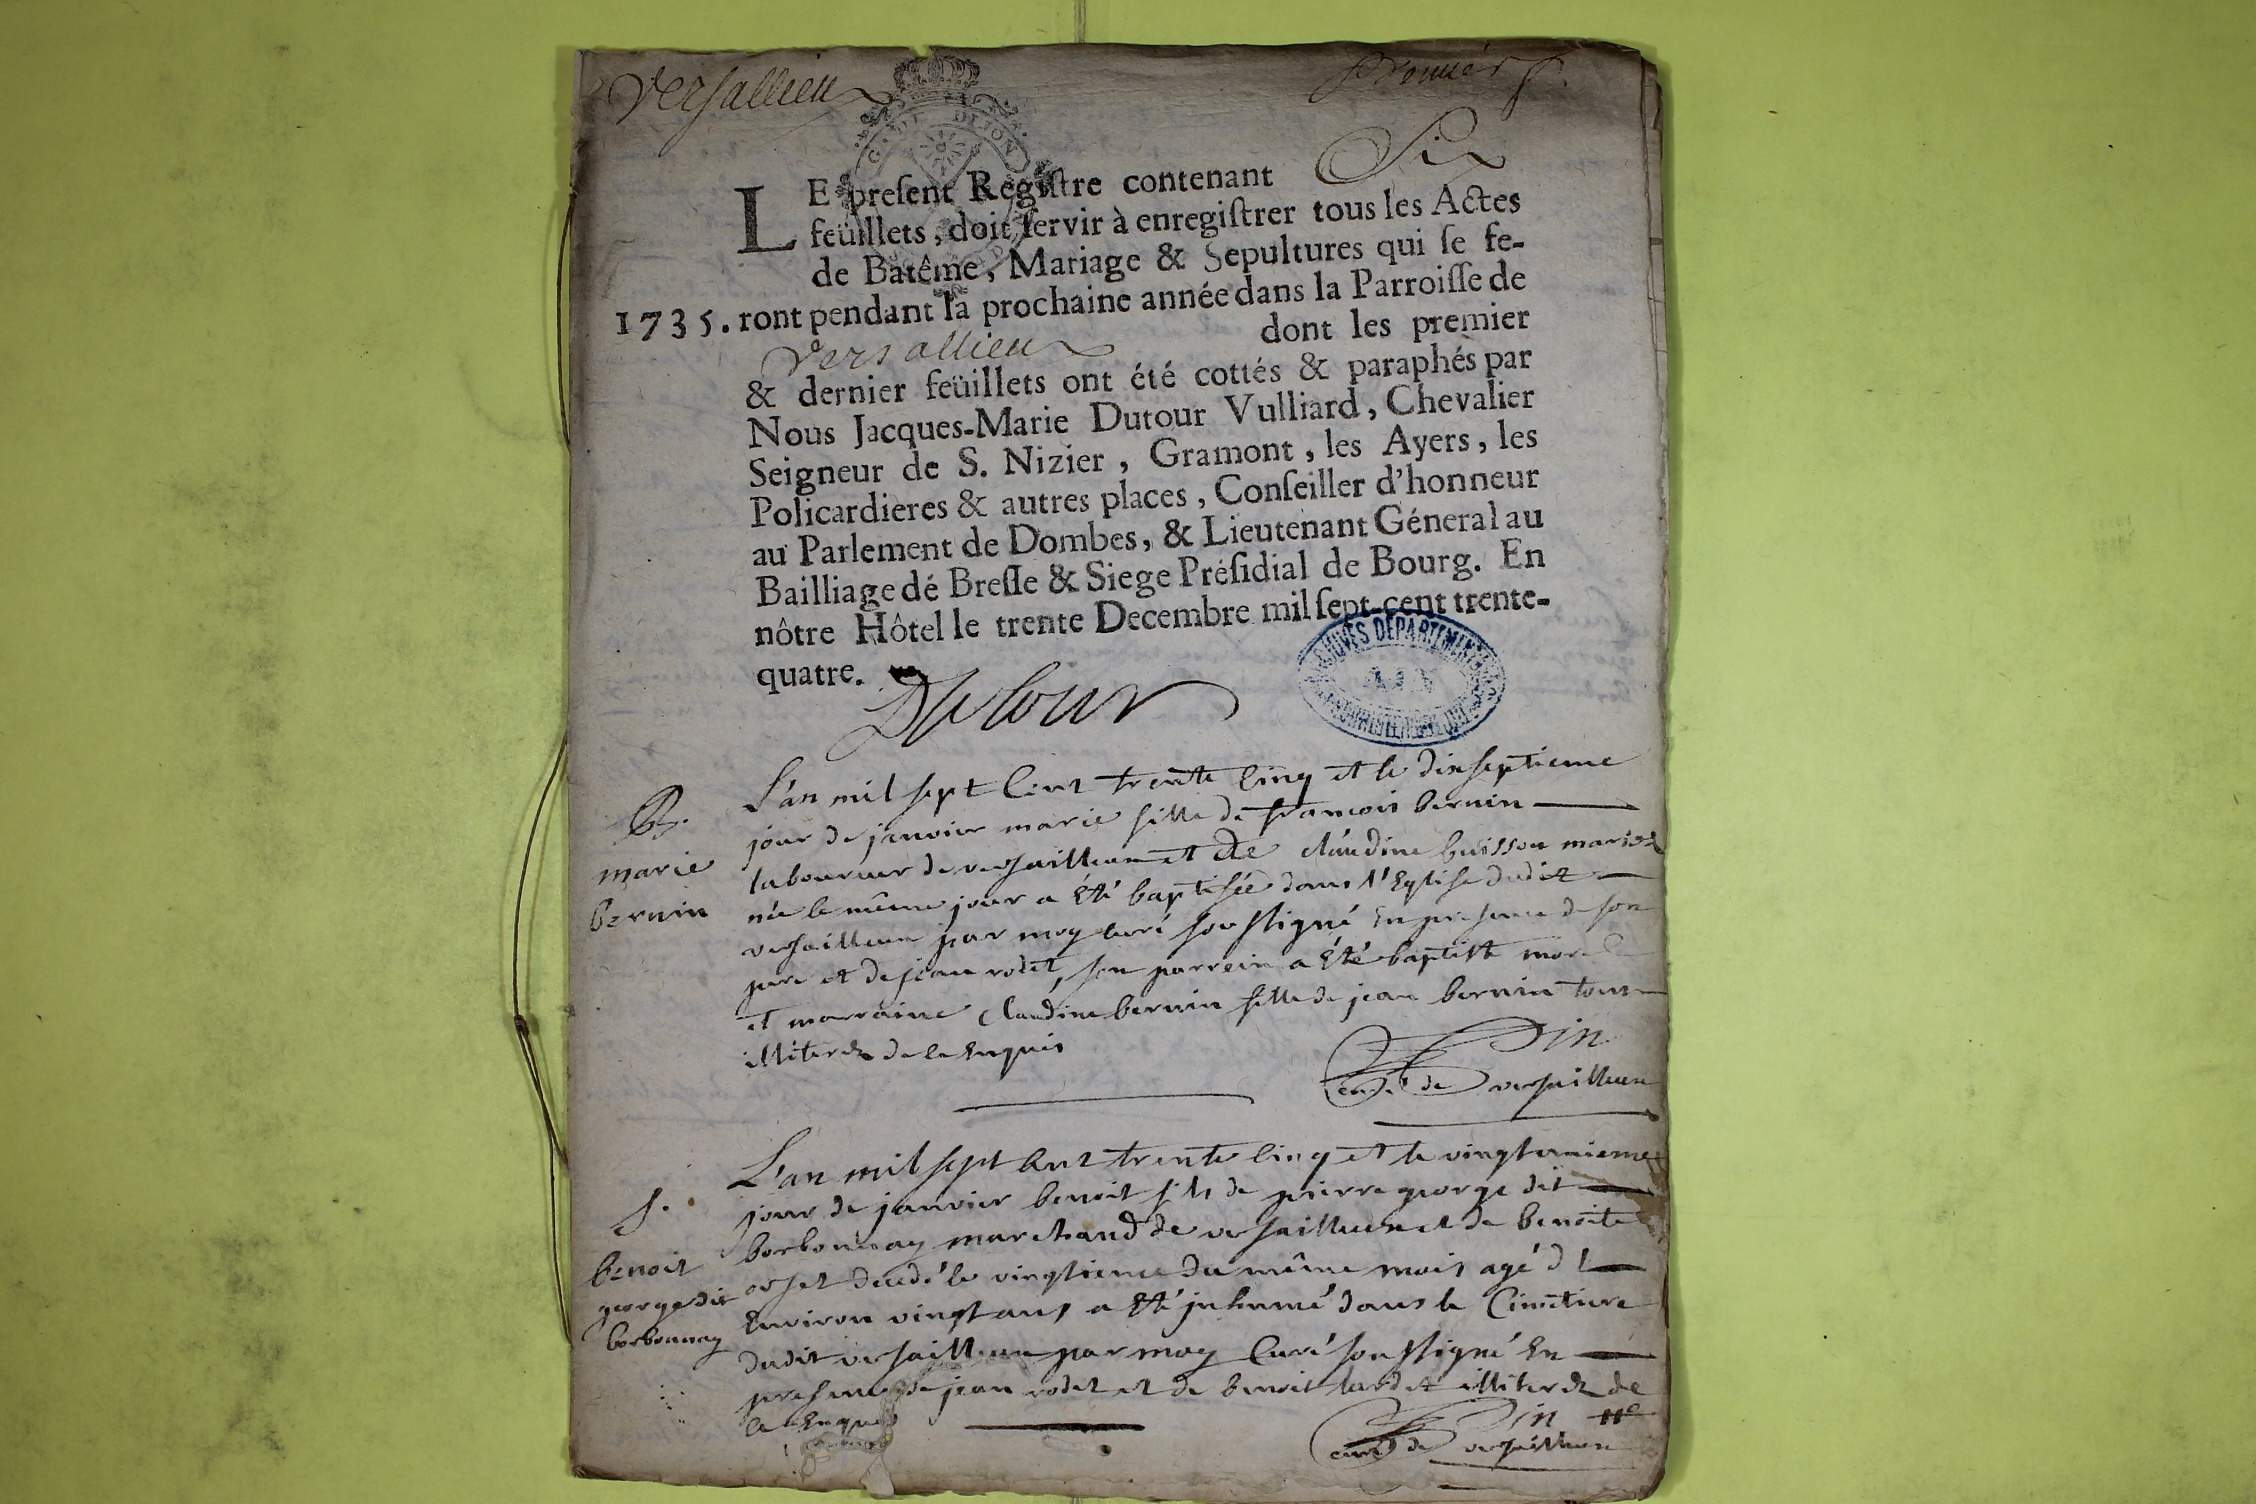 Versallieu
premier
G. DE DIJON
LE preſent Regiſtre contenant Six
feüillets, doit ſervir à enregiſtrer tous les Actes
de Batême, Mariage & Sepultures qui ſe fe-
1735. ront pendant la prochaine année dans la Parroiſſe de
Versallieu dont les premier
& dernier feüillets ont été cottés & paraphés par
Nous Jacques-Marie Dutour Vulliard, Chevalier
Seigneur de S. Nizier, Gramont, les Ayers, les
Policardieres & autres places, Conſeiller d'honneur
au Parlement de Dombes, & Lieutenant Géneral au
Bailliage dé Breſſe & Siege Préſidial de Bourg. En
nôtre Hôtel le trente Decembre mil ſept-cent trente-
quatre.
Dutour
ARCHIVES DÉPARTEMENTALES
B.
marie
bernin
L'an mil sept Cent trente Cinq et le dixseptieme
jour de janvier marie fille de francois bernin
laboureur de versailleux et de claudine buisson mariez
née le même jour a été baptisée dans l'Eglise dudit
versailleux par moy curé soussigné En presence de son
pere et de jean rodet, son parrein a été baptiste morel
et marraine Claudine bernin fille de jean bernin tous
illiterez de ce Enquis
Din
curé de versailleux
S.
benoit
george dit
borbonnay
L'an mil sept Cent trente Cinq et le vingtunieme
jour de janvier benoit fils de pierre george dit
borbonnay marchand de versailleux et de benoite
orset decedé le vingtieme du même mois agé d
Environ vingt ans a été inhumé dans le Cimetiere
dudit versailleux par moy Curé soussigné En
presence de jean rodet et de benoit lardet illiterez de
ce Enquis
Din
curé de versailleux